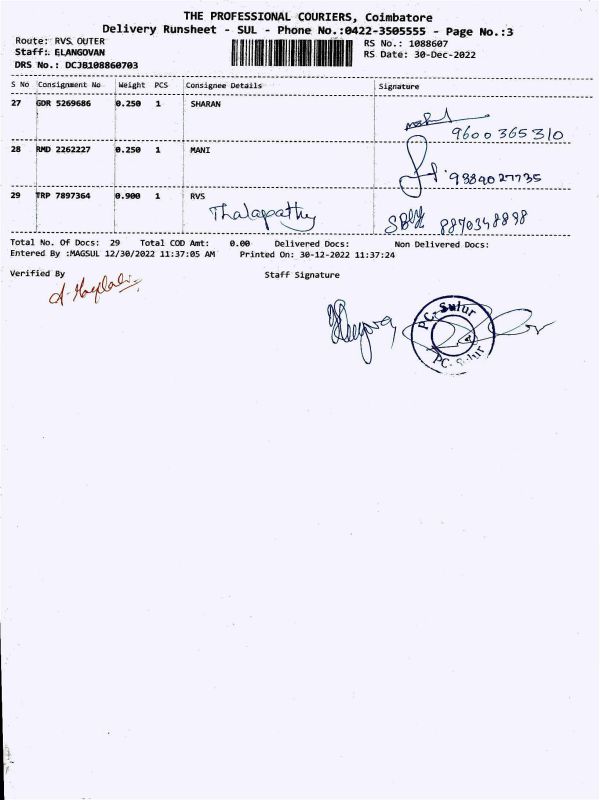 THE PROFESSIONAL COURIERS, Coimbatore
Delivery Runsheet - SUL - Phone No.:0422-3505555 - Page No.:3
Route: RVS OUTER
RS No.: 1088607
Staff: ELANGOVAN
RS Date: 30-Dec-2022
DRS No.: DCJB108860703
S No Consignment No Weight PCS Consignee Details Signature
27 GDR 5269686 0.250 1 SHARAN
9600365310
28 RMD 2262227 0.250 1 MANI
9884027735
29 TRP 7897364 0.900 1 RVS
Thalapathy 8870348898
Total No. Of Docs: 29 Total COD Amt: 0.00 Delivered Docs: Non Delivered Docs:
Entered By :MAGSUL 12/30/2022 11:37:05 AM Printed On: 30-12-2022 11:37:24
Verified By Staff Signature
PC-Sulur
PC-Sulur